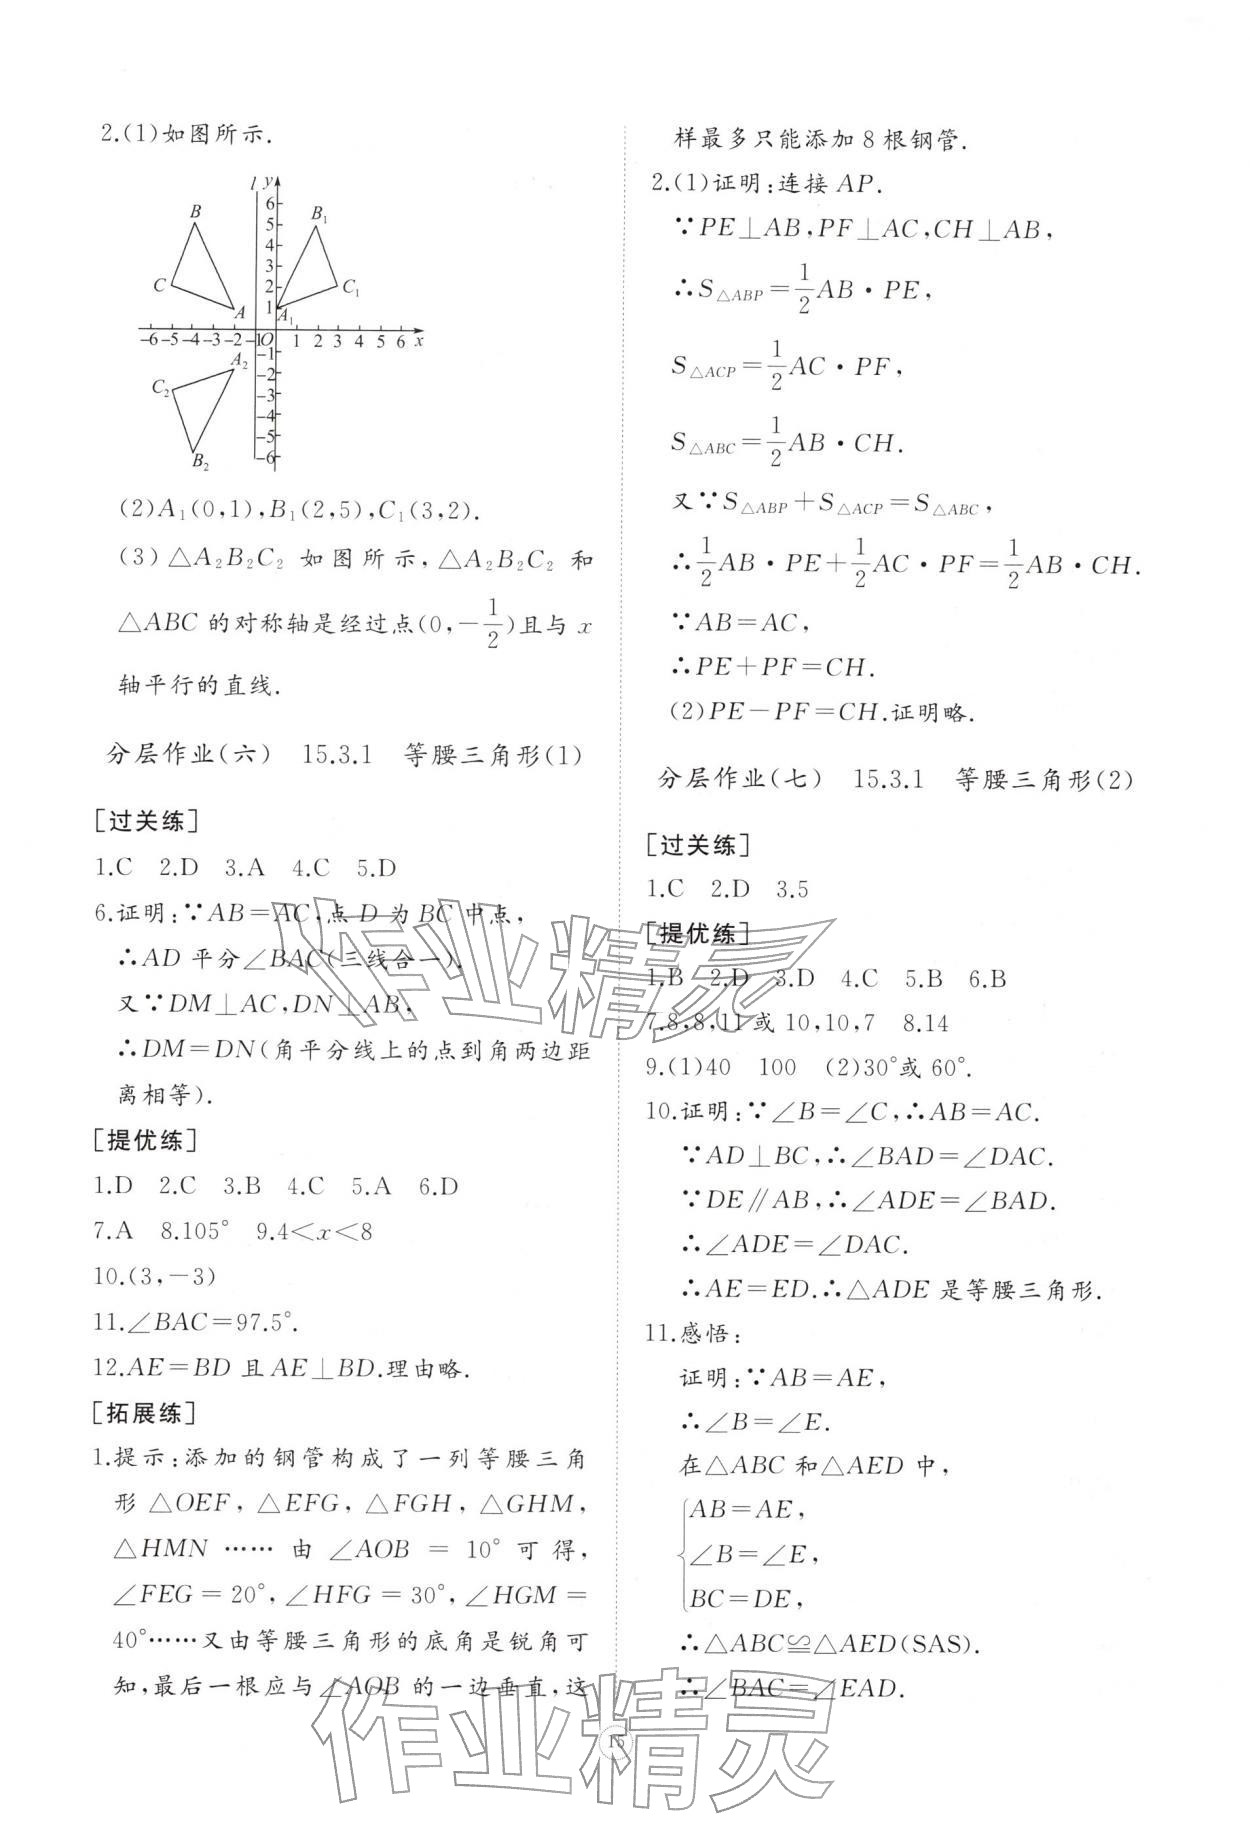 2.(1)如图所示.
l y
6
B 5 B₁
4
3
C 2 C₁
A 1
A₁
-6-5-4-3-2 -1O 1 2 3 4 5 6 x
-1
A₂
-2
C₂ -3
-4
-5
B₂ -6
(2)A₁(0,1),B₁(2,5),C₁(3,2).
(3)△A₂B₂C₂ 如图所示,△A₂B₂C₂ 和
△ABC 的对称轴是经过点(0,-1/2)且与 x
轴平行的直线.
分层作业(六) 15.3.1 等腰三角形(1)
[过关练]
1.C 2.D 3.A 4.C 5.D
6.证明:∵AB=AC,点 D 为 BC 中点,
∴AD 平分∠BAC(三线合一).
又∵DM⊥AC,DN⊥AB,
∴DM=DN(角平分线上的点到角两边距
离相等).
[提优练]
1.D 2.C 3.B 4.C 5.A 6.D
7.A 8.105° 9.4<x<8
10.(3,-3)
11.∠BAC=97.5°.
12.AE=BD 且 AE⊥BD.理由略.
[拓展练]
1.提示:添加的钢管构成了一列等腰三角
形 △OEF, △EFG, △FGH, △GHM,
△HMN …… 由 ∠AOB = 10° 可得,
∠FEG = 20°, ∠HFG = 30°, ∠HGM =
40°……又由等腰三角形的底角是锐角可
知,最后一根应与∠AOB 的一边垂直,这
样最多只能添加 8 根钢管.
2.(1)证明:连接 AP.
∵PE⊥AB,PF⊥AC,CH⊥AB,
∴S△ABP=1/2AB·PE,
S△ACP=1/2AC·PF,
S△ABC=1/2AB·CH.
又∵S△ABP+S△ACP=S△ABC,
∴1/2AB·PE+1/2AC·PF=1/2AB·CH.
∵AB=AC,
∴PE+PF=CH.
(2)PE-PF=CH.证明略.
分层作业(七) 15.3.1 等腰三角形(2)
[过关练]
1.C 2.D 3.5
[提优练]
1.B 2.D 3.D 4.C 5.B 6.B
7.8,8,11 或 10,10,7 8.14
9.(1)40 100 (2)30°或 60°.
10.证明:∵∠B=∠C,∴AB=AC.
∵AD⊥BC,∴∠BAD=∠DAC.
∵DE∥AB,∴∠ADE=∠BAD.
∴∠ADE=∠DAC.
∴AE=ED.∴△ADE 是等腰三角形.
11.感悟:
证明:∵AB=AE,
∴∠B=∠E.
在△ABC 和△AED 中,
AB=AE,
∠B=∠E,
BC=DE,
∴△ABC≌△AED(SAS).
∴∠BAC=∠EAD.
15
作业精灵
作业精灵